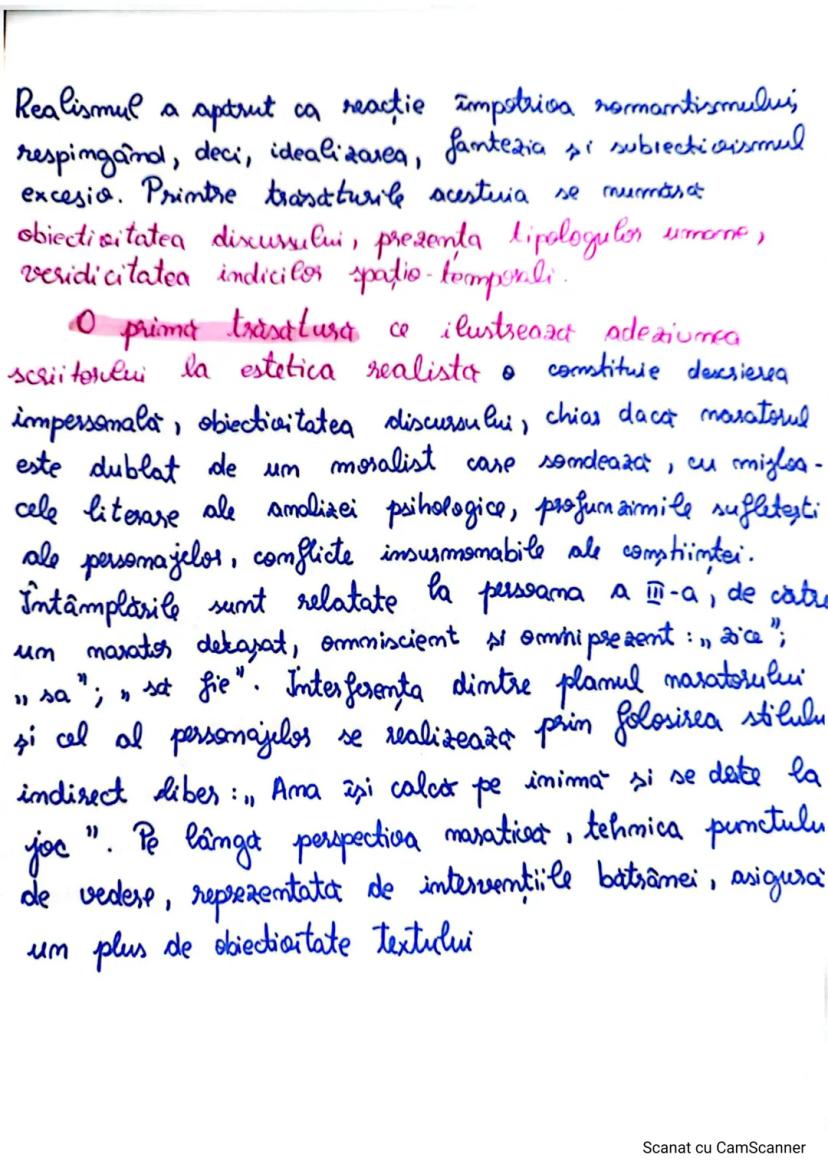 Realismul a apărut ca reacție împotriva romantismului,
respingând, deci, idealizarea, fantezia și subiectivismul
excesiv. Printre trăsăturile acestuia se numără
obiectivitatea discursului, prezența tipologiilor umane,
veridicitatea indicilor spațio-temporali.
O primă trăsătură ce ilustrează adeziunea
scriitorului la estetica realistă o constituie descrierea
impersonală, obiectivitatea discursului, chiar dacă naratorul
este dublat de un moralist care sondează, cu mijloa-
cele literare ale analizei psihologice, profunzimile sufletești
ale personajelor, conflicte insurmonabile ale conștiinței.
Întâmplările sunt relatate la persoana a III-a, de către
un narator detașat, omniscient și omniprezent: „zice";
„sa"; „să fie". Interferența dintre planul naratorului
și cel al personajelor se realizează prin folosirea stilulu
indirect liber: „Ana își calcă pe inimă și se dete la
joc". Pe lângă perspectiva narativă, tehnica punctulu
de vedere, reprezentată de intervențiile bătrânei, asigură
un plus de obiectivitate textului
Scanat cu CamScanner